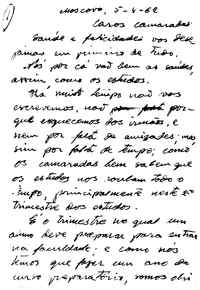 Moscovo, 5-4-62
Caros camaradas
Saúde e felicidades vos dese
jamos em primeiro de tudo.
Nós por cá vai bem as saúdes,
assim como os estudos.
Há muito tempo não vos
escrevemos, não por-
que esquecemos dos irmãos, e
nem por falta de amizades; mas
sim por falta de tempo; como
os camaradas bem sabem que
os estudos nos roubam todo o
tempo, principalmente neste 2º
trimestre dos estudos.
É o trimestre no qual um
aluno deve preparar para entrar
na faculdade. e como nós
temos que fazer um ano de
curso preparatório, somos obri